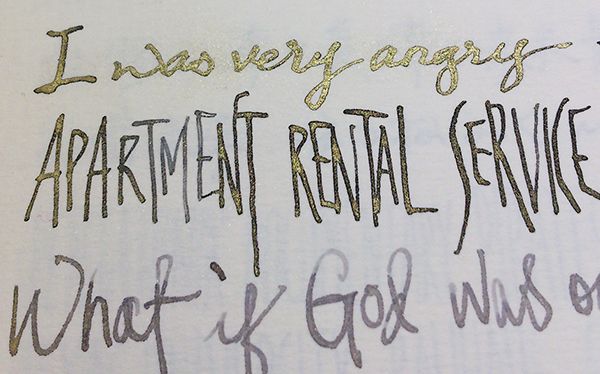 I was very angry
APARTMENT RENTAL SERVICE
What if God was